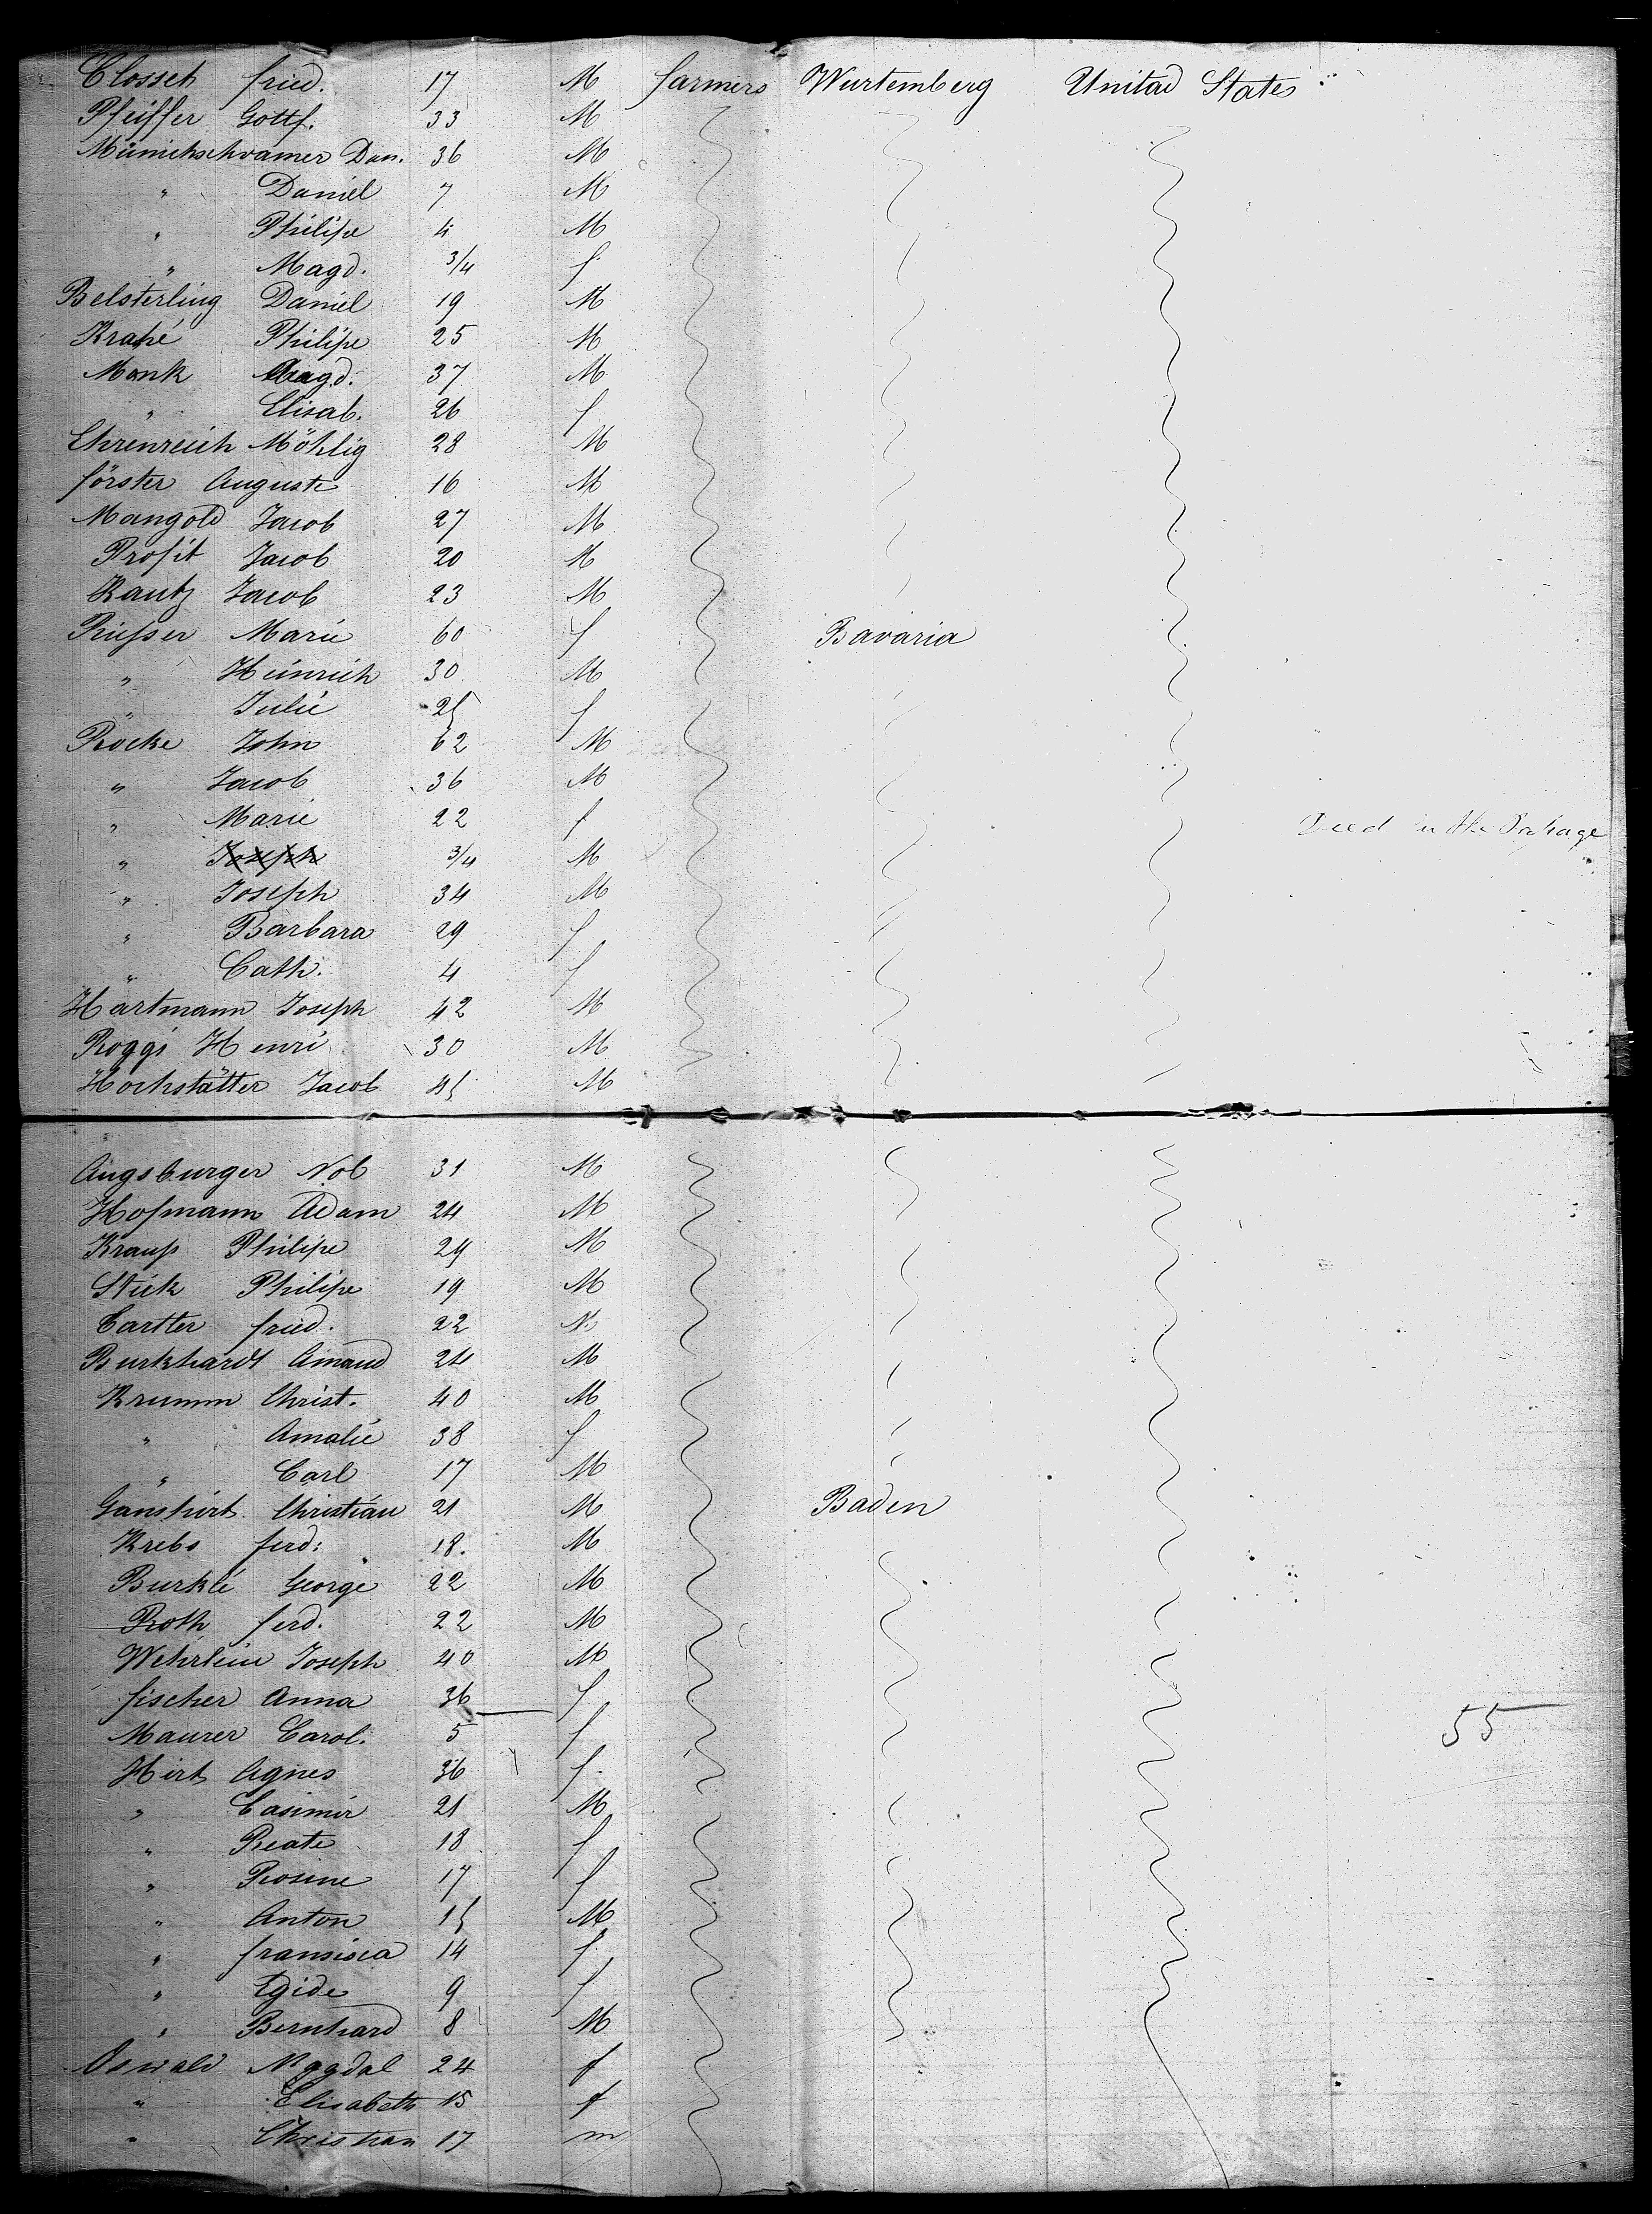 Closset fried. 17 M farmers Wurtemberg Unitad States
Pfeiffer Gottf. 33 M
Münichschramer Dan. 36 M
" Daniel 7 M
" Philipe 4 M
" Magd. 3/4 f
Belsterling Daniel 19 M
Krahé Philipe 25 M
Monk Magd. 37 M
" Elisab. 26 f
Ehrenreich Möhlig 28 M
förster Auguste 16 M
Mangold Jacob 27 M
Profit Jacob 20 M
Kautz Jacob 23 M
Marie 60 f Bavaria
" Heinrich 30 M
" Julie 25 f
Rocke John 62 M
" Jacob 36 M
" Marie 22 f
" Joseph 3/4 M Died in the Passage
" Joseph 34 M
" Barbara 29 f
" Cath. 4 f
Hartmann Joseph 42 M
Roggi Henri 30 M
Hochstätter Jacob 45 M
Augsburger Nob 31 M
Hofmann Adam 24 M
Krauss Philipe 29 M
Stick Philipe 19 M
Cartter fried. 22 M
Burkhardt Amand 24 M
Krumm Christ. 40 M
" Amalie 38 f
" Carl 17 M
Ganshirt Christian 21 M Baden
Krebs ferd: 18. M
Burklé George 22 M
Roth ferd. 22 M
Wehrlein Joseph 40 M
fischer Anna 36 f
Maurer Carol. 5 f 55
Hirt Agnes 36 f.
" Casimir 21 M
" Beate 18 f
" Rosine 17 f
" Anton 15 M
" fransisca 14 f
" Egide 9 f
" Bernhard 8 M
Oswald Magdal 24 f
" Elisabeth 15 f
" Christian 17 m